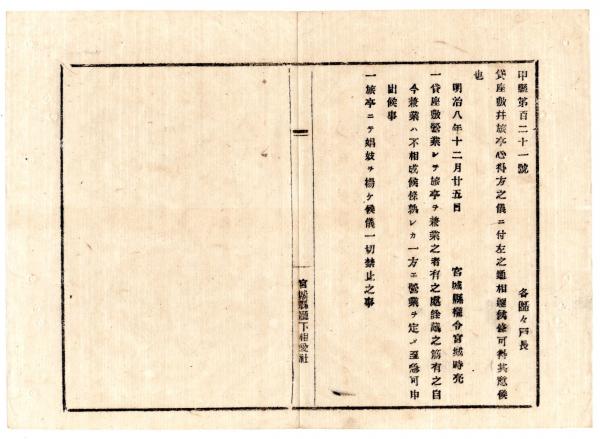 甲第百二十一號
各區々戸長
貸座敷并旅亭心得方之儀ニ付左之通相達候條可得其意候
也
明治八年十二月廿五日
宮城縣權令宮城時亮
一貸座敷營業ニシテ旅亭ヲ兼業之者有之處詮議之筋有之自
今兼業ハ不相成候條孰レカ一方エ營業ヲ定メ至急可申
出候事
一旅亭ニテ娼妓ヲ揚ケ候儀一切禁止之事
宮城縣廳下相愛社